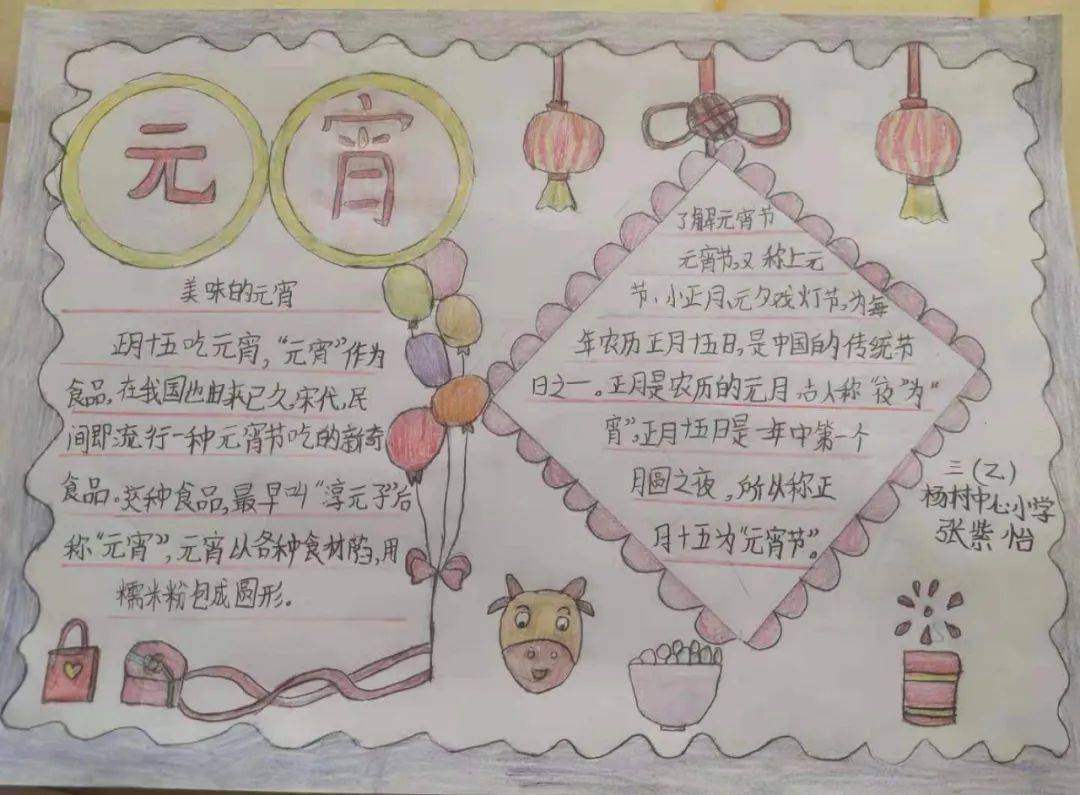 元宵
美味的元宵
正月十五吃元宵，“元宵”作为
食品，在我国也由来已久，宋代，民
间即流行一种元宵节吃的新奇
食品。这种食品，最早叫“浮元子”后
称“元宵”，元宵以各种食材馅，用
糯米粉包成圆形。
了解元宵节
元宵节，又称上元
节、小正月、元夕或灯节，为每
年农历正月十五日，是中国的传统节
日之一。正月是农历的元月，古人称“夜”为“
宵”，正月十五日是一年中第一个
月圆之夜，所以称正
月十五为“元宵节”。
三(乙)
杨村中心小学
张紫怡